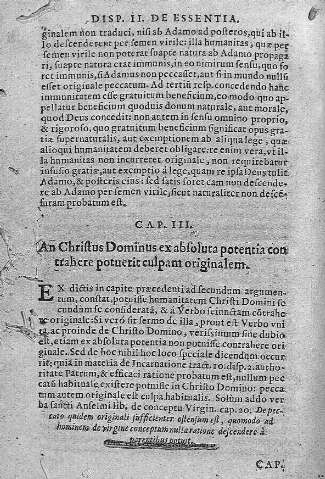 DISP. II. DE ESSENTIA.
ginalem non traduci, nisi ab Adamo ad posteros, qui ab il-
lo descenderent per semen virile: illa humanitas, quæ per
semen virile non poterat suapte natura ab Adamo propaga
ri, suapte natura erat immunis, in eo nimirum sensu, quo fo
ret immunis, si Adamus non peccasset, aut si in mundo nullū
esset originale peccatum. Ad tertiũ resp. concedendo hanc
immunitatem esse gratuitum beneficium, eo modo quo ap-
pellatur beneficium quoduis donum naturale, aut morale,
quod Deus concedit: non autem in sensu omnino proprio,
& rigoroso, quo gratuitum beneficium significat opus gra-
tiæ supernaturalis, aut exemptionem ab aliqua lege, quæ
alioqui humanitatem deberet obligare. re enim vera, vt il-
la humanitas non incurreret originale, non requirebatur
infusio gratiæ, aut exemptio à lege, quam re ipsa Deus tulit
Adamo, & posteris eius: sed satis foret eam non descende-
re ab Adamo per semen virile, sicut naturaliter non descen-
suram probatum est.
CAP. III.
An Christus Dominus ex absoluta potentia con
trahere potuerit culpam originalem.
EX dictis in capite præcedenti ad secundum argumen-
tum, constat, potuisse humanitatem Christi Domini se
cundum se consideratã, & à Verbo seiunctam cõtrahe-
re originale. Si verò sit sermo de illa, prout est Verbo vni
ta, ac proinde de Christo Domino, verissimum sine dubio
est, etiam ex absoluta potentia non potuisse contrahere ori
ginale. Sed de hoc nihil hoc loco speciale dicendum occur
rit: quia in materia de Incarnatione tract. 10. disp. 2. autho-
ritate Patrum, & efficaci ratione probatum est, nullum pec
catũ habituale existere potuisse in Christo Domino: pecca
tum autem originale est culpa habitualis. Solum addo ver
ba sancti Anselmi lib. de conceptu Virgin. cap. 20. De pec-
cato quidem originali sufficienter ostensum est, quomodo ad
hominem de virgine conceptum nulla ratione descendere à
parentibus potuit.
CAP.